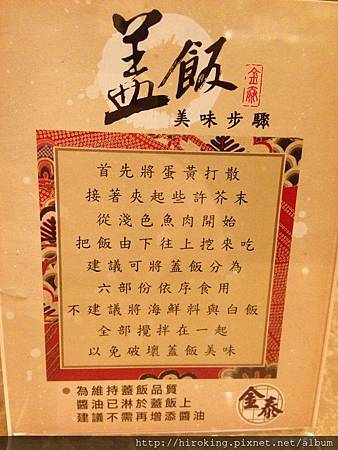 盖飯
金泰
美味步驟
首先將蛋黃打散
接著夾起些許芥末
從淺色魚肉開始
把飯由下往上挖來吃
建議可將蓋飯分為
六部份依序食用
不建議將海鮮料與白飯
全部攪拌在一起
以免破壞蓋飯美味
● 為維持蓋飯品質
醬油已淋於蓋飯上
● 建議不需再增添醬油
金泰
http://hiroking.pixnet.net/album